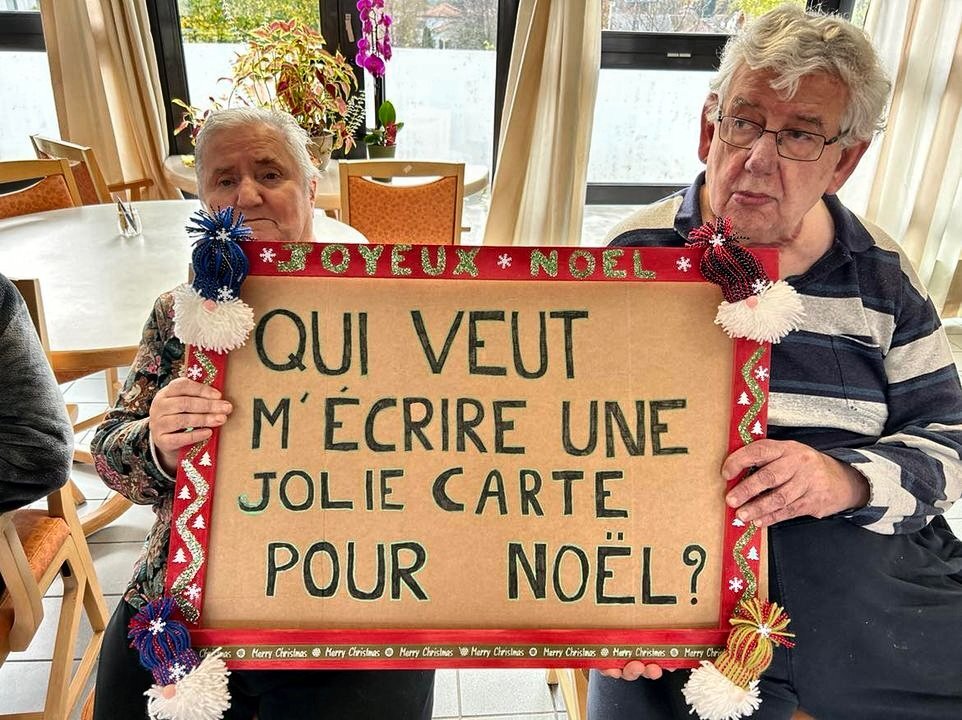 JOYEUX * NOEL
QUI VEUT
M'ÉCRIRE UNE
JOLIE CARTE
POUR NOËL?
Merry Christmas Merry Christmas Merry Christmas Merry Christmas Merry Christmas Merry